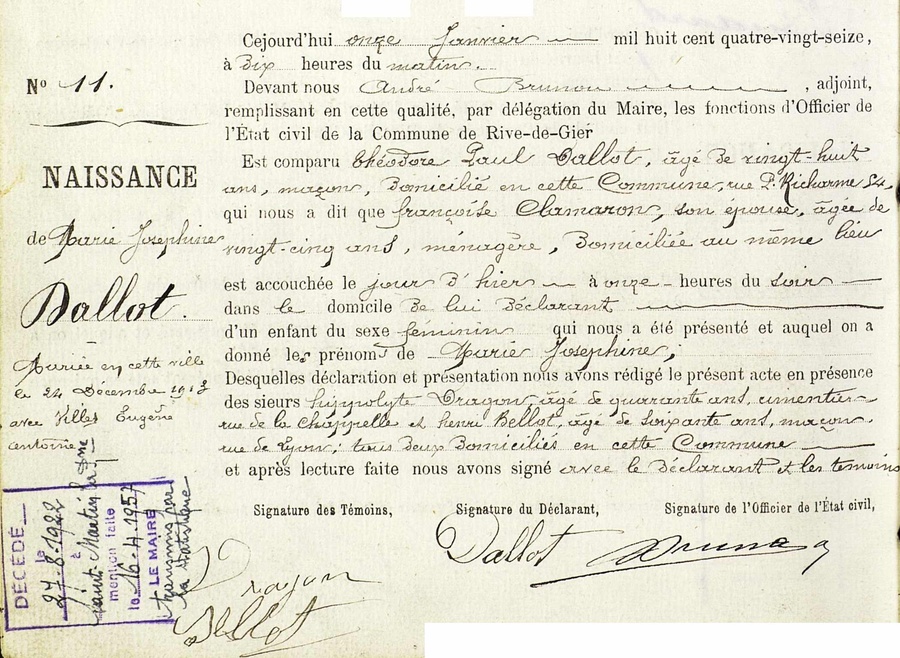 Cejourd'hui onze Janvier mil huit cent quatre-vingt-seize,
à Dix heures du matin.
Devant nous André Brunon, adjoint,
remplissant en cette qualité, par délégation du Maire, les fonctions d'Officier de
l'État civil de la Commune de Rive-de-Gier
Est comparu Théodore Paul Dallot, âgé de vingt-huit
ans, maçon, Domicilié en cette Commune, rue P. Richarme 54,
qui nous a dit que françoise Clamaron, son épouse, âgée de
vingt-cinq ans, ménagère, Domiciliée au même lieu
est accouchée le jour D'hier à onze heures du soir
dans le domicile De lui Déclarant
d'un enfant du sexe feminin qui nous a été présenté et auquel on a
donné les prénoms de Marie Josephine;
Desquelles déclaration et présentation nous avons rédigé le présent acte en présence
des sieurs hippolyte Dragon, âgé de quarante ans, cimentier
rue de la Chappelle et henri Bellot, âgé de soixante ans, maçon
rue de Lyon; tous deux Domiciliés en cette Commune
et après lecture faite nous avons signé avec le Déclarant et les temoins
Signature des Témoins, Signature du Déclarant, Signature de l'Officier de l'État civil,
Dallot Brunon
Dragon
Bellot
N° 11.
NAISSANCE
de Marie Josephine
Dallot.
Mariée en cette ville
le 24 Décembre 1913
avec Villes Eugène
antoine
DÉCÉDÉ
le 27-8-1922
à Saint-Martin
mention faite
le 16-4-1957
LE MAIRE
transmis par
la statistique